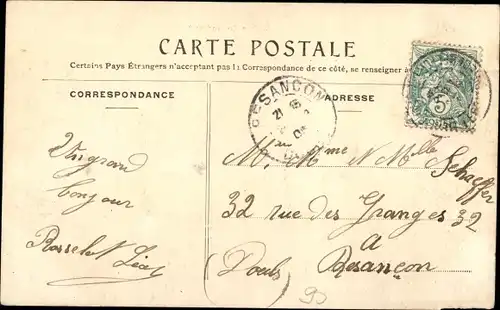 CARTE POSTALE
Certains Pays Étrangers n'acceptant pas la Correspondance de ce côté, se renseigner à
CORRESPONDANCE
ADRESSE
BESANCON
21
5
Un grand
bonjour
M. Mme N Melle Schaffer
32 rue des Granges 32
à
(Doubs) Besançon